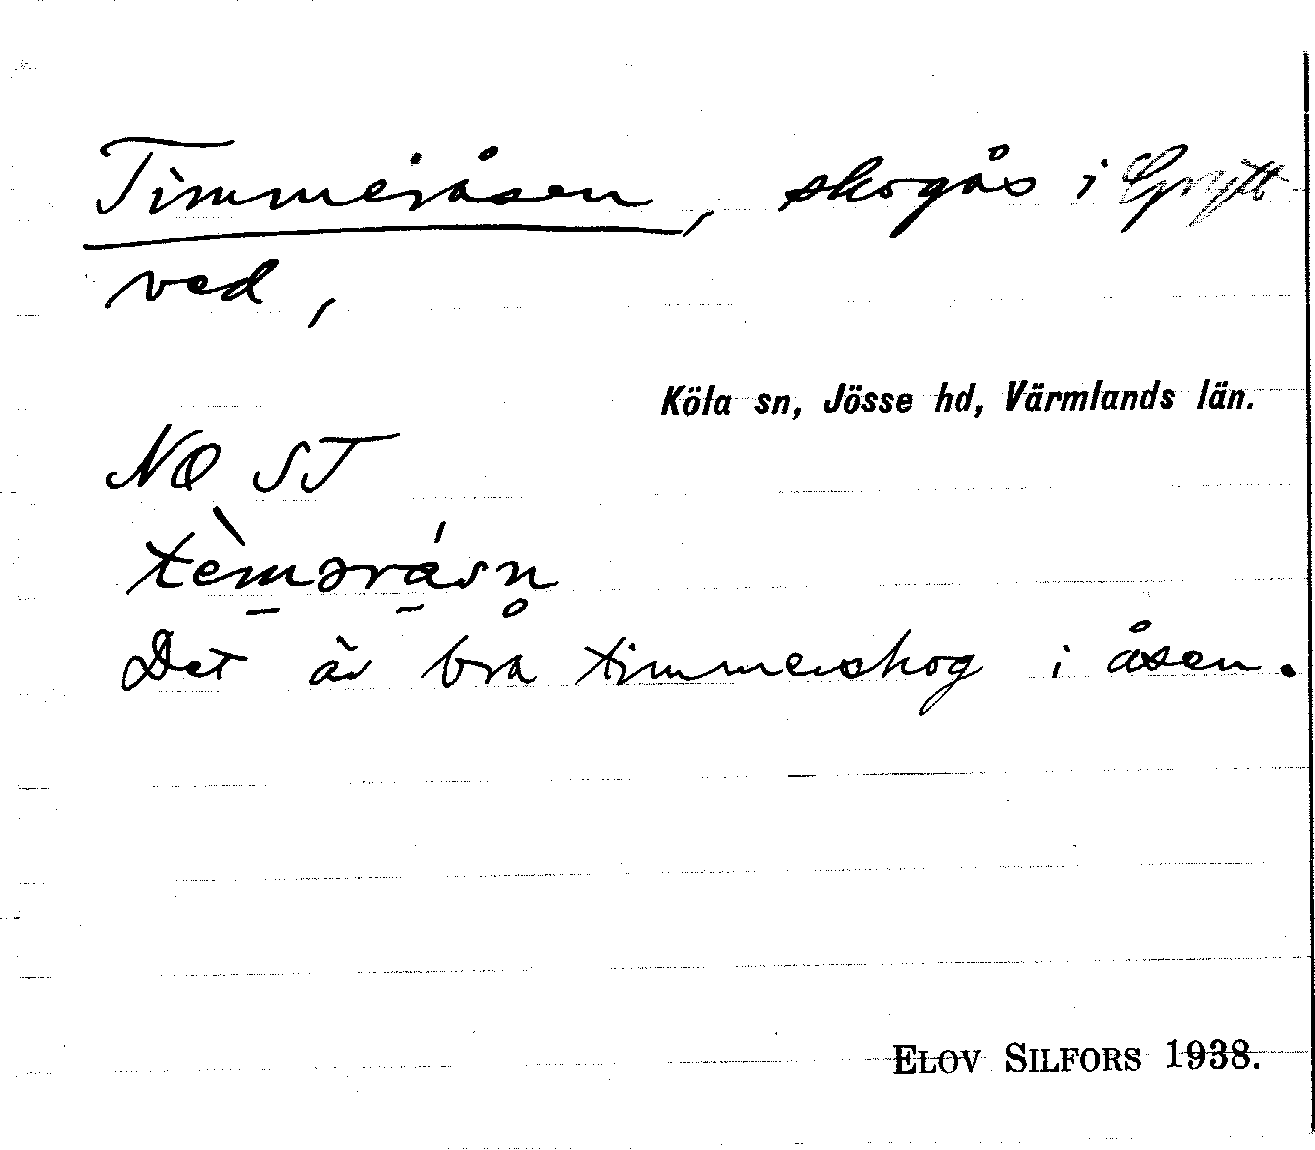 Timmeråsen, skogås i Grytt
ved,
Köla sn, Jösse hd, Värmlands län.
NO ST
tèmərásn̥
Det är bra timmerskog i åsen.
ELOV SILFORS 1938.